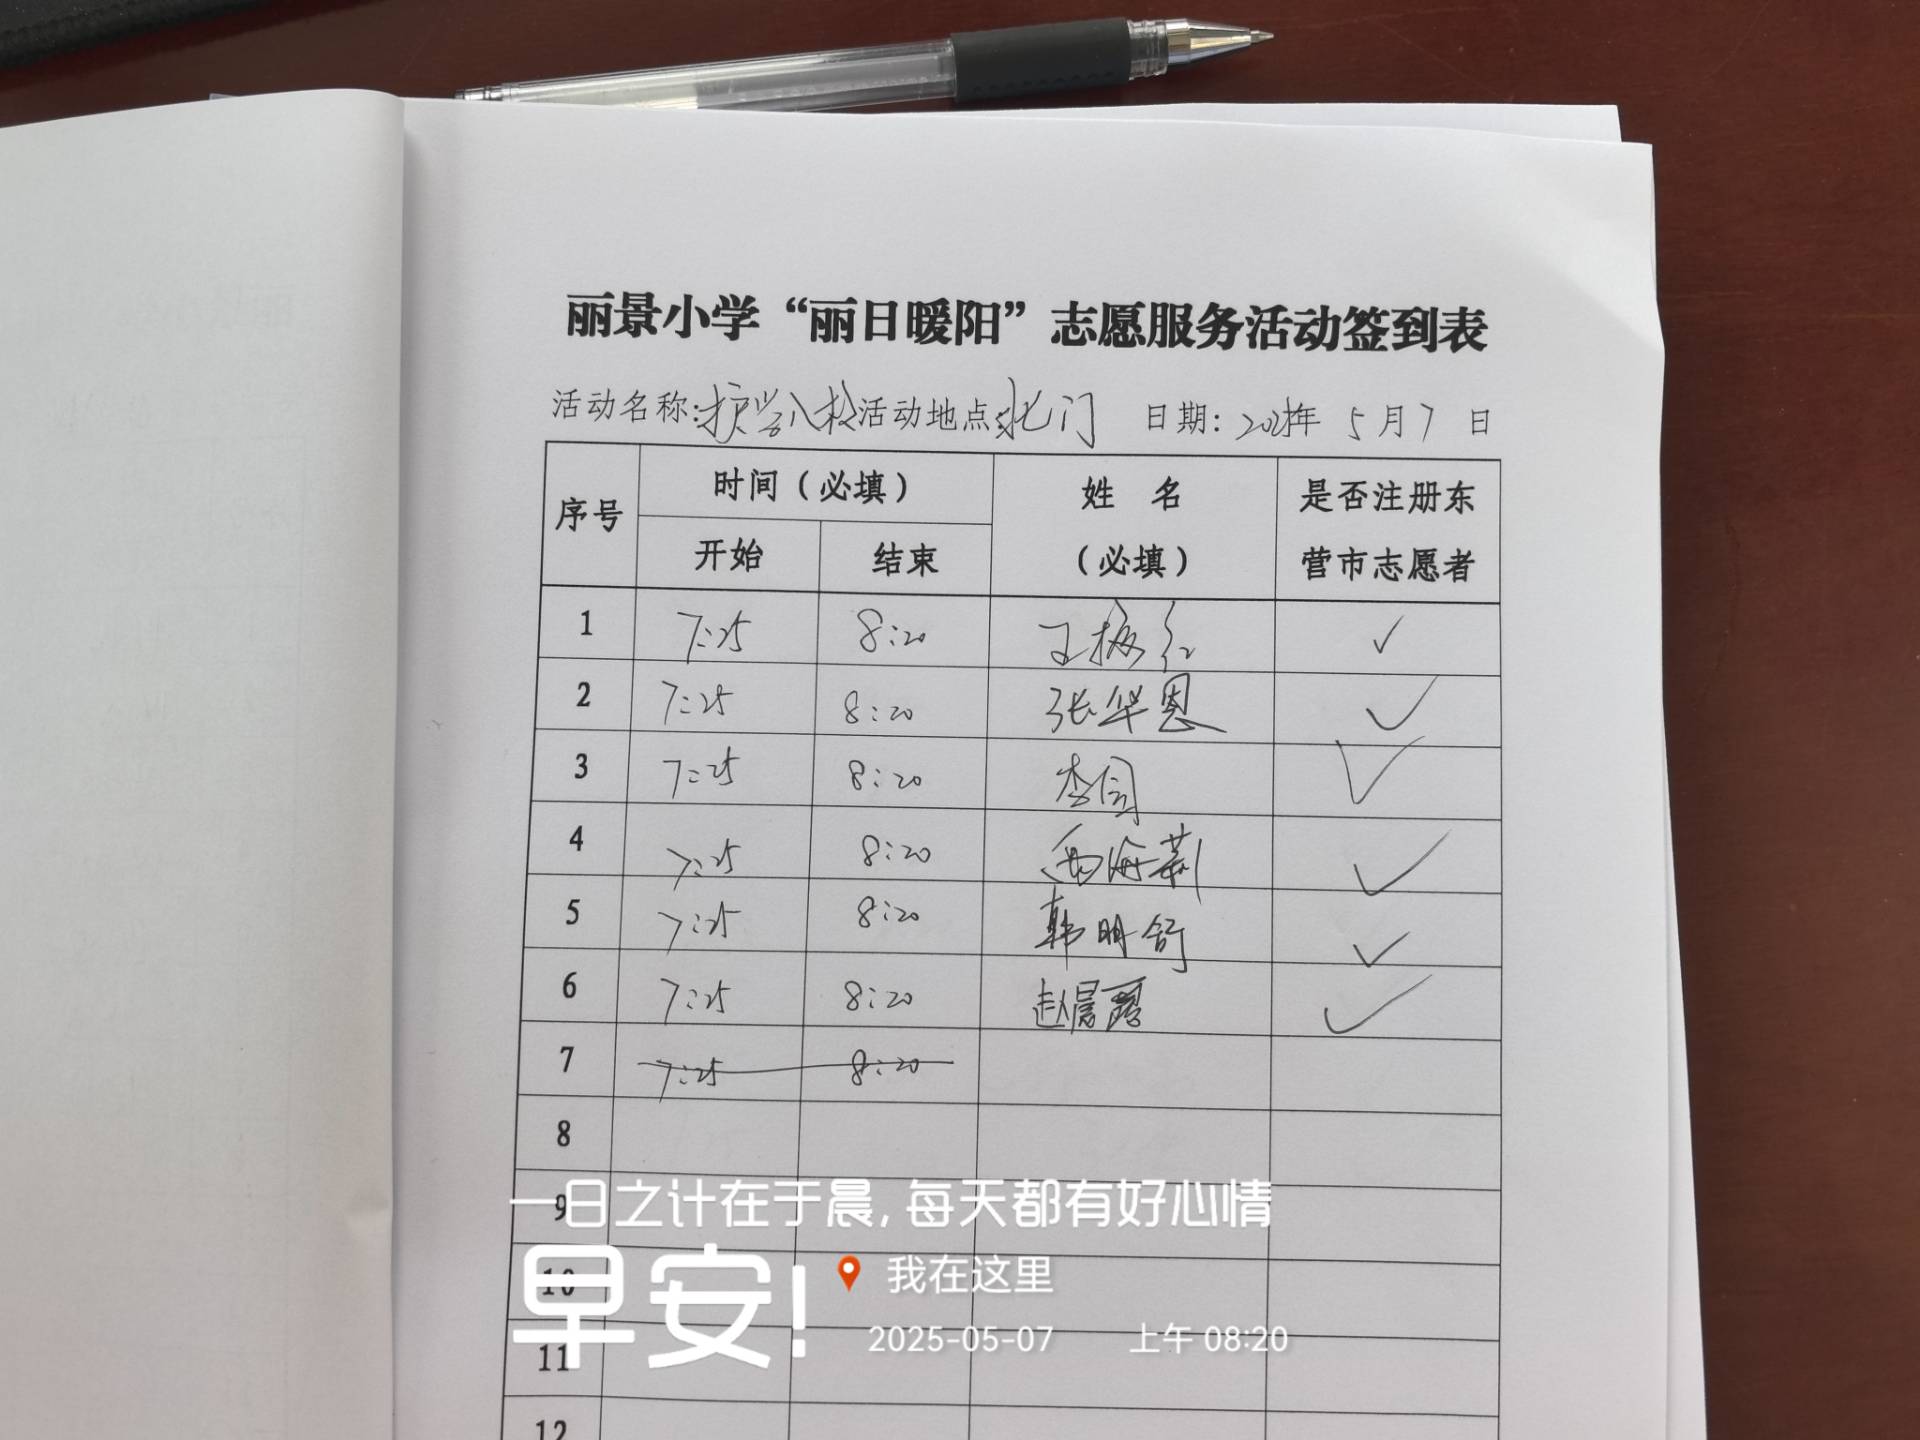 丽景小学“丽日暖阳”志愿服务活动签到表
活动名称:护学入校 活动地点:北门 日期: 2025年 5月7日
序号 时间（必填） 姓 名 是否注册东
开始 结束 （必填） 营市志愿者
1 7:25 8:20 王 红 ✓
2 7:25 8:20 张华恩 ✓
3 7:25 8:20 李 ✓
4 7:25 8:20 海 ✓
5 7:25 8:20 韩明舒 ✓
6 7:25 8:20 赵晨露 ✓
7 7:25 8:20
8
一日之计在于晨,每天都有好心情
9
早安!
10
我在这里
2025-05-07 上午 08:20
11
12